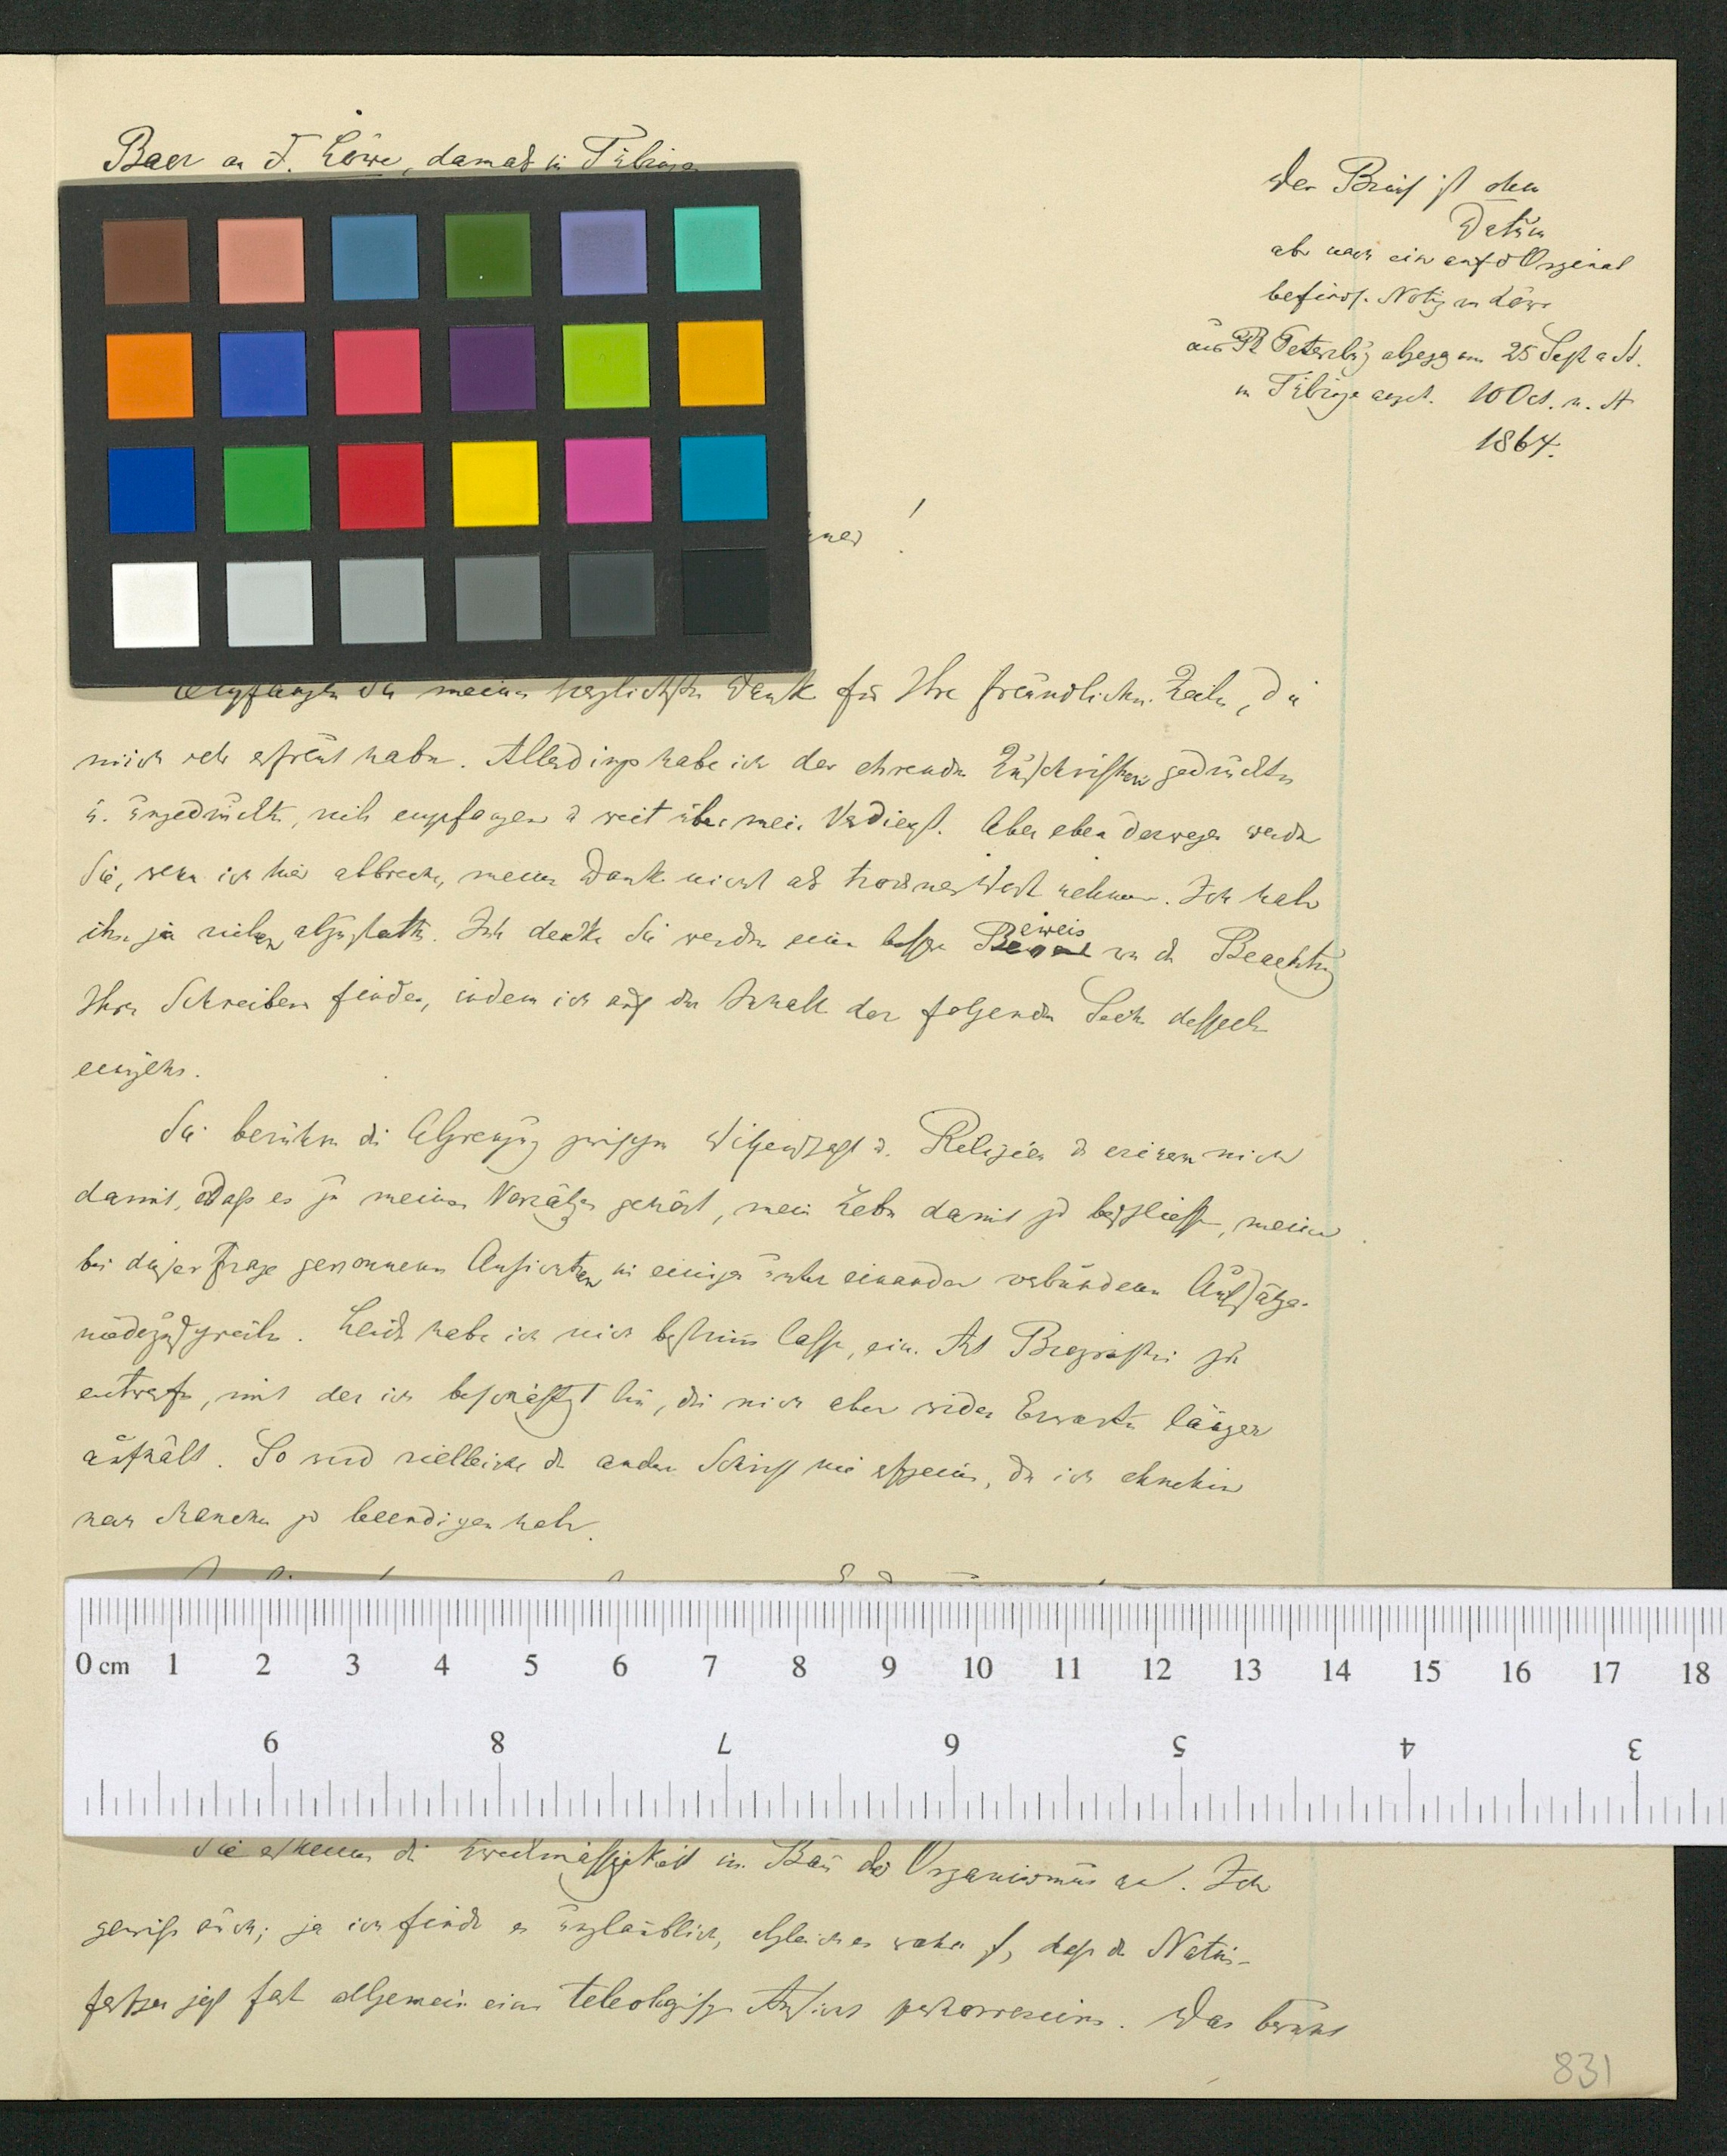 Baer an F. Löwe, damals in Tübingen
Der Brief ist ohne
Datum
aber nach einer auf d Original
befindl. Notiz von Löwe
aus St Petersburg abgeg am 25 Sept a St.
in Tübingen angek. 10 Oct. n. St
1864.
!
Empfangen Sie meinen herzlichsten Dank für Ihre freundlichen Zeilen, die
mich sehr erfreut haben. Allerdings habe ich der ehrenden Zuschriften, gedruckten
u. ungedruckten, viele empfangen u weit über mein Verdienst. Aber eben deswegen werden
Sie, wenn ich hier abbreche, meinen Dank nicht als trocknes Wort nehmen. Ich habe
ihn ja vielen abzustatten. Ich denke Sie werden einen bessern Beweis von der Beachtung
Ihres Schreibens finden, indem ich auf den Inhalt der folgenden Seiten desselben
eingehe.
Sie berühren die Abgrenzung zwischen Wissenschaft u. Religion u erinnern mich
damit, dass es zu meinen Vorsätzen gehört, mein Leben damit zu beschliessen, meine
bei dieser Frage gewonnenen Ansichten in einigen unter einander verbundenen Aufsätzen
niederzuschreiben. Leider habe ich mich bestimmen lassen, eine Art Biographie zu
entwerfen, mit der ich beschäftigt bin, die mich aber wider Erwarten länger
aufhält. So wird vielleicht die andere Schrift nie erscheinen, da ich ohnehin
noch Manches zu beendigen habe.
0 cm 1 2 3 4 5 6 7 8 9 10 11 12 13 14 15 16 17 18
9 8 7 6 5 4 3
Sie erkennen die Zweckmässigkeit im Bau des Organismus an. Ich
gewiss auch; ja ich finde es unglaublich, obgleich es wahr ist, dass die Natur-
forscher jetzt fast allgemein eine teleologische Ansicht perhorresciren. Das beruht
831